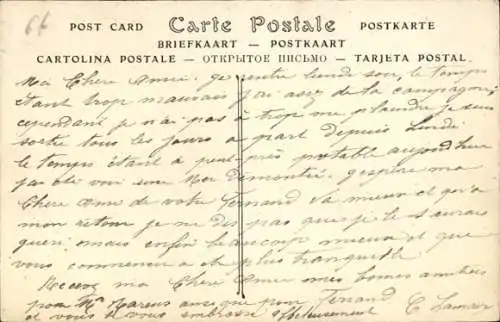 66
POST CARD Carte Postale POSTKARTE
BRIEFKAART — POSTKAART
CARTOLINA POSTALE — ОТКРЫТОЕ ПИСЬМО — TARJETA POSTAL
Ma Chere Amie. je rentre lundi soir, le temps
étant trop mauvais j'ai assez de la campagne
cependant je n'ai pas à trop me plaindre je suis
sortie tous les jours a part depuis Lundi
le temps étant a peut près potable aujourd'hui
j'ai été voir une Mer démontée. j'espère ma
Chere Amie de votre Fernand va mieux et qu'a
mon retour je ne dis pas que je le saurais
queri mais enfin beaucoup mieux et que
vous commencez a et plus tranquille
Recevez ma Chere Amie mes bonnes amitiés
pour Mr ainsi que pour Fernand
et vous je vous embrasse affectueusement